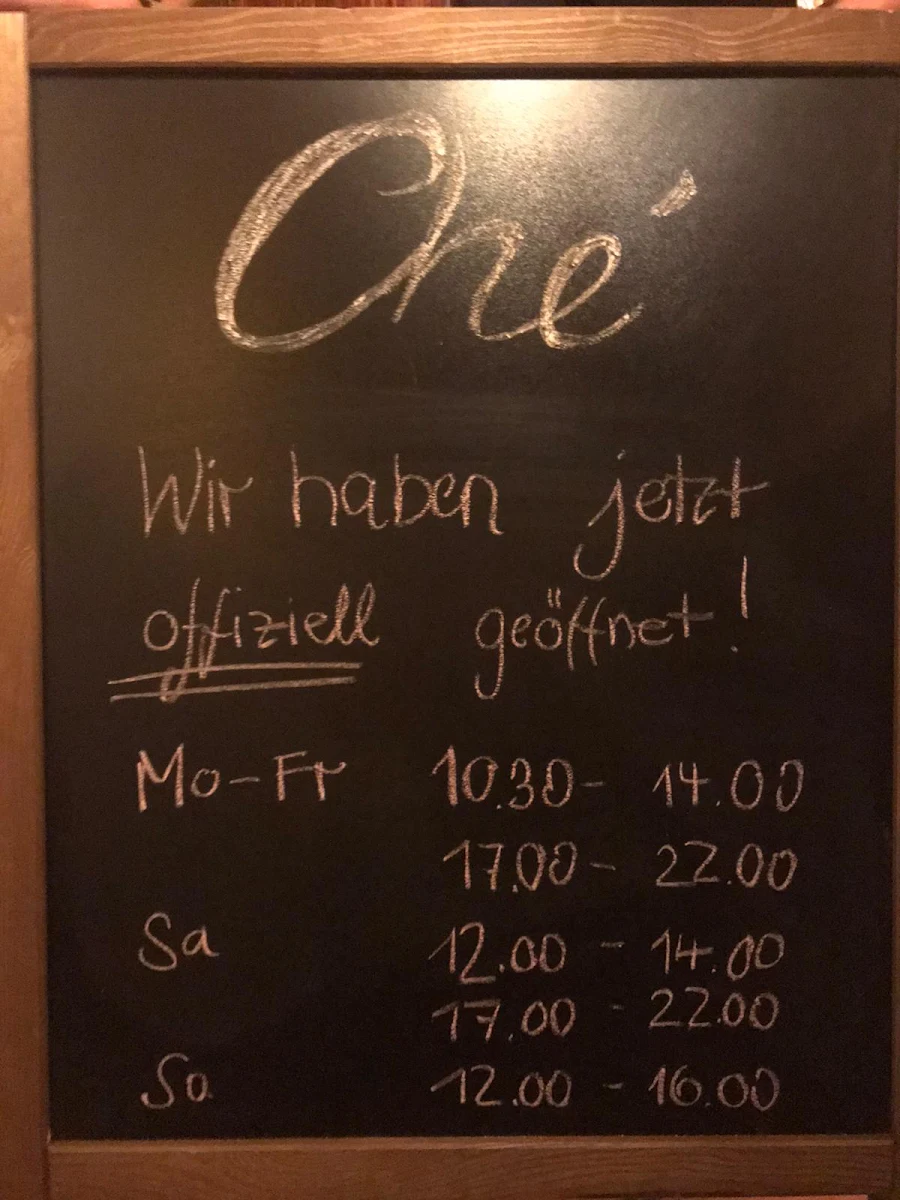 Ohé
Wir haben jetzt
offiziell geöffnet!
Mo-Fr 10.30- 14.00
17.00- 22.00
Sa 12.00 - 14.00
17.00 - 22.00
So 12.00 - 16.00